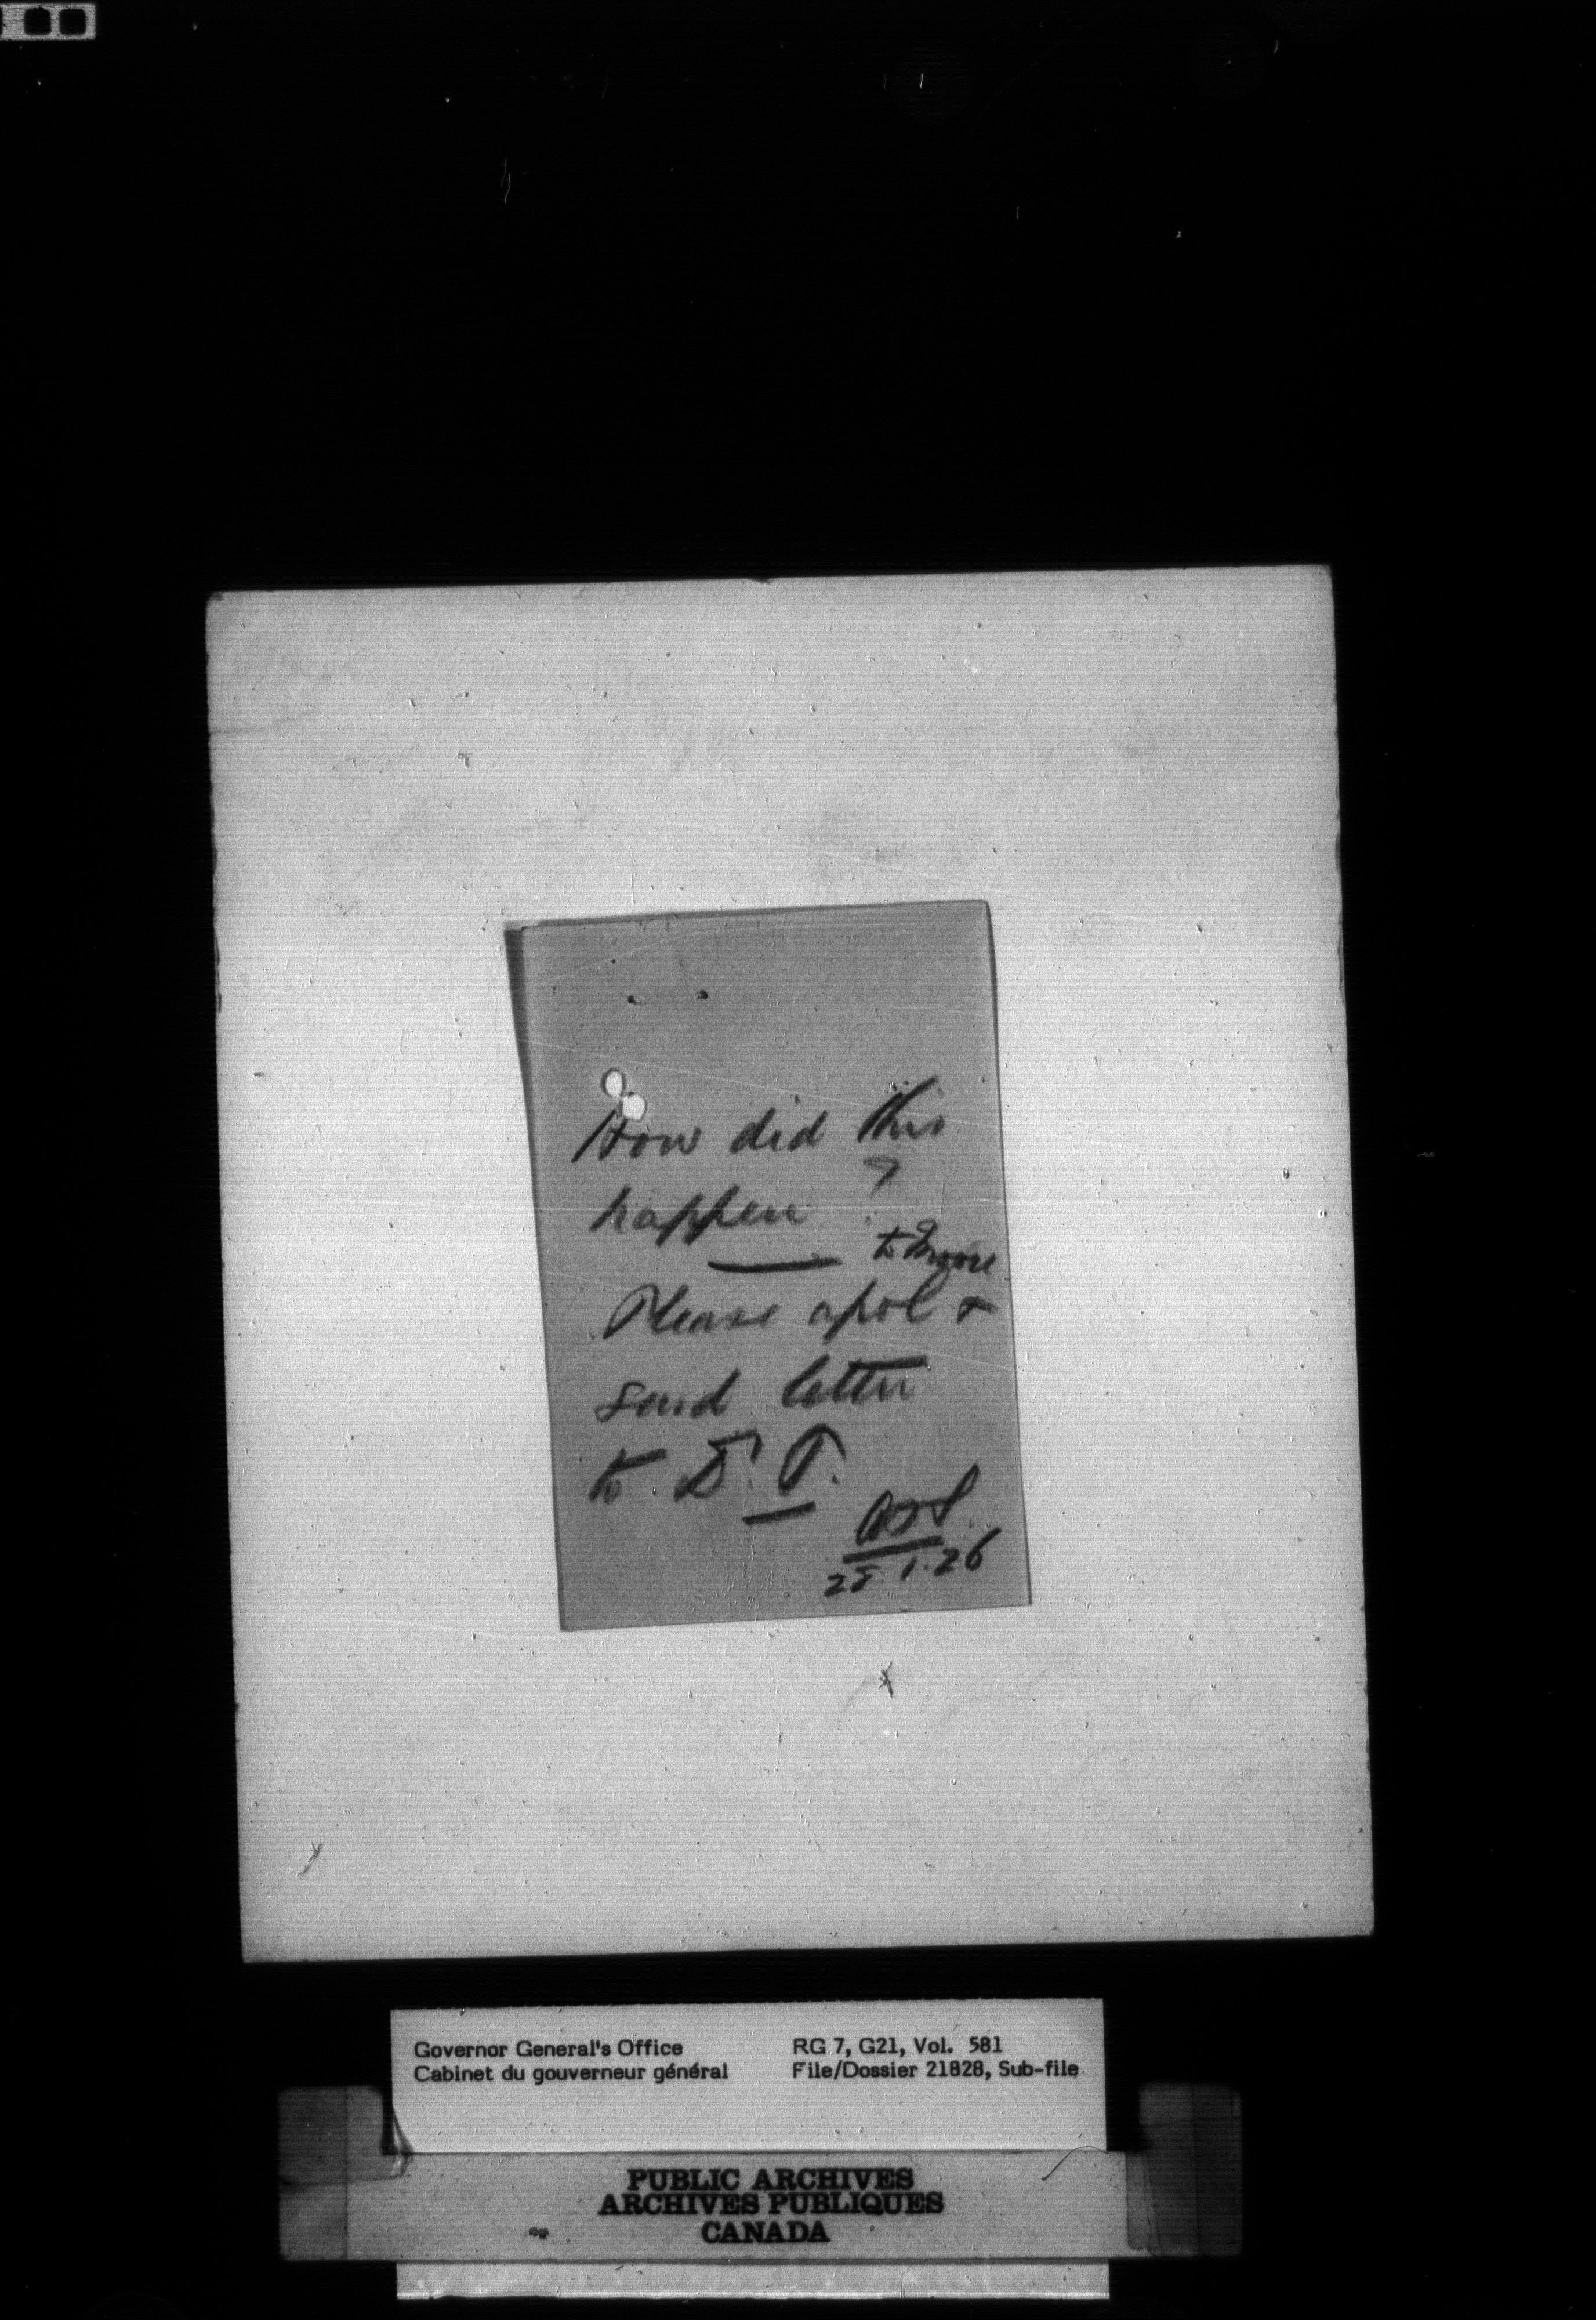 How did this
happen ?
to Moore
Please apol &
send letter
to
25.1.26
Governor General's Office
Cabinet du gouverneur général
RG 7, G21, Vol. 581
File/Dossier 21828, Sub-file
PUBLIC ARCHIVES
ARCHIVES PUBLIQUES
CANADA